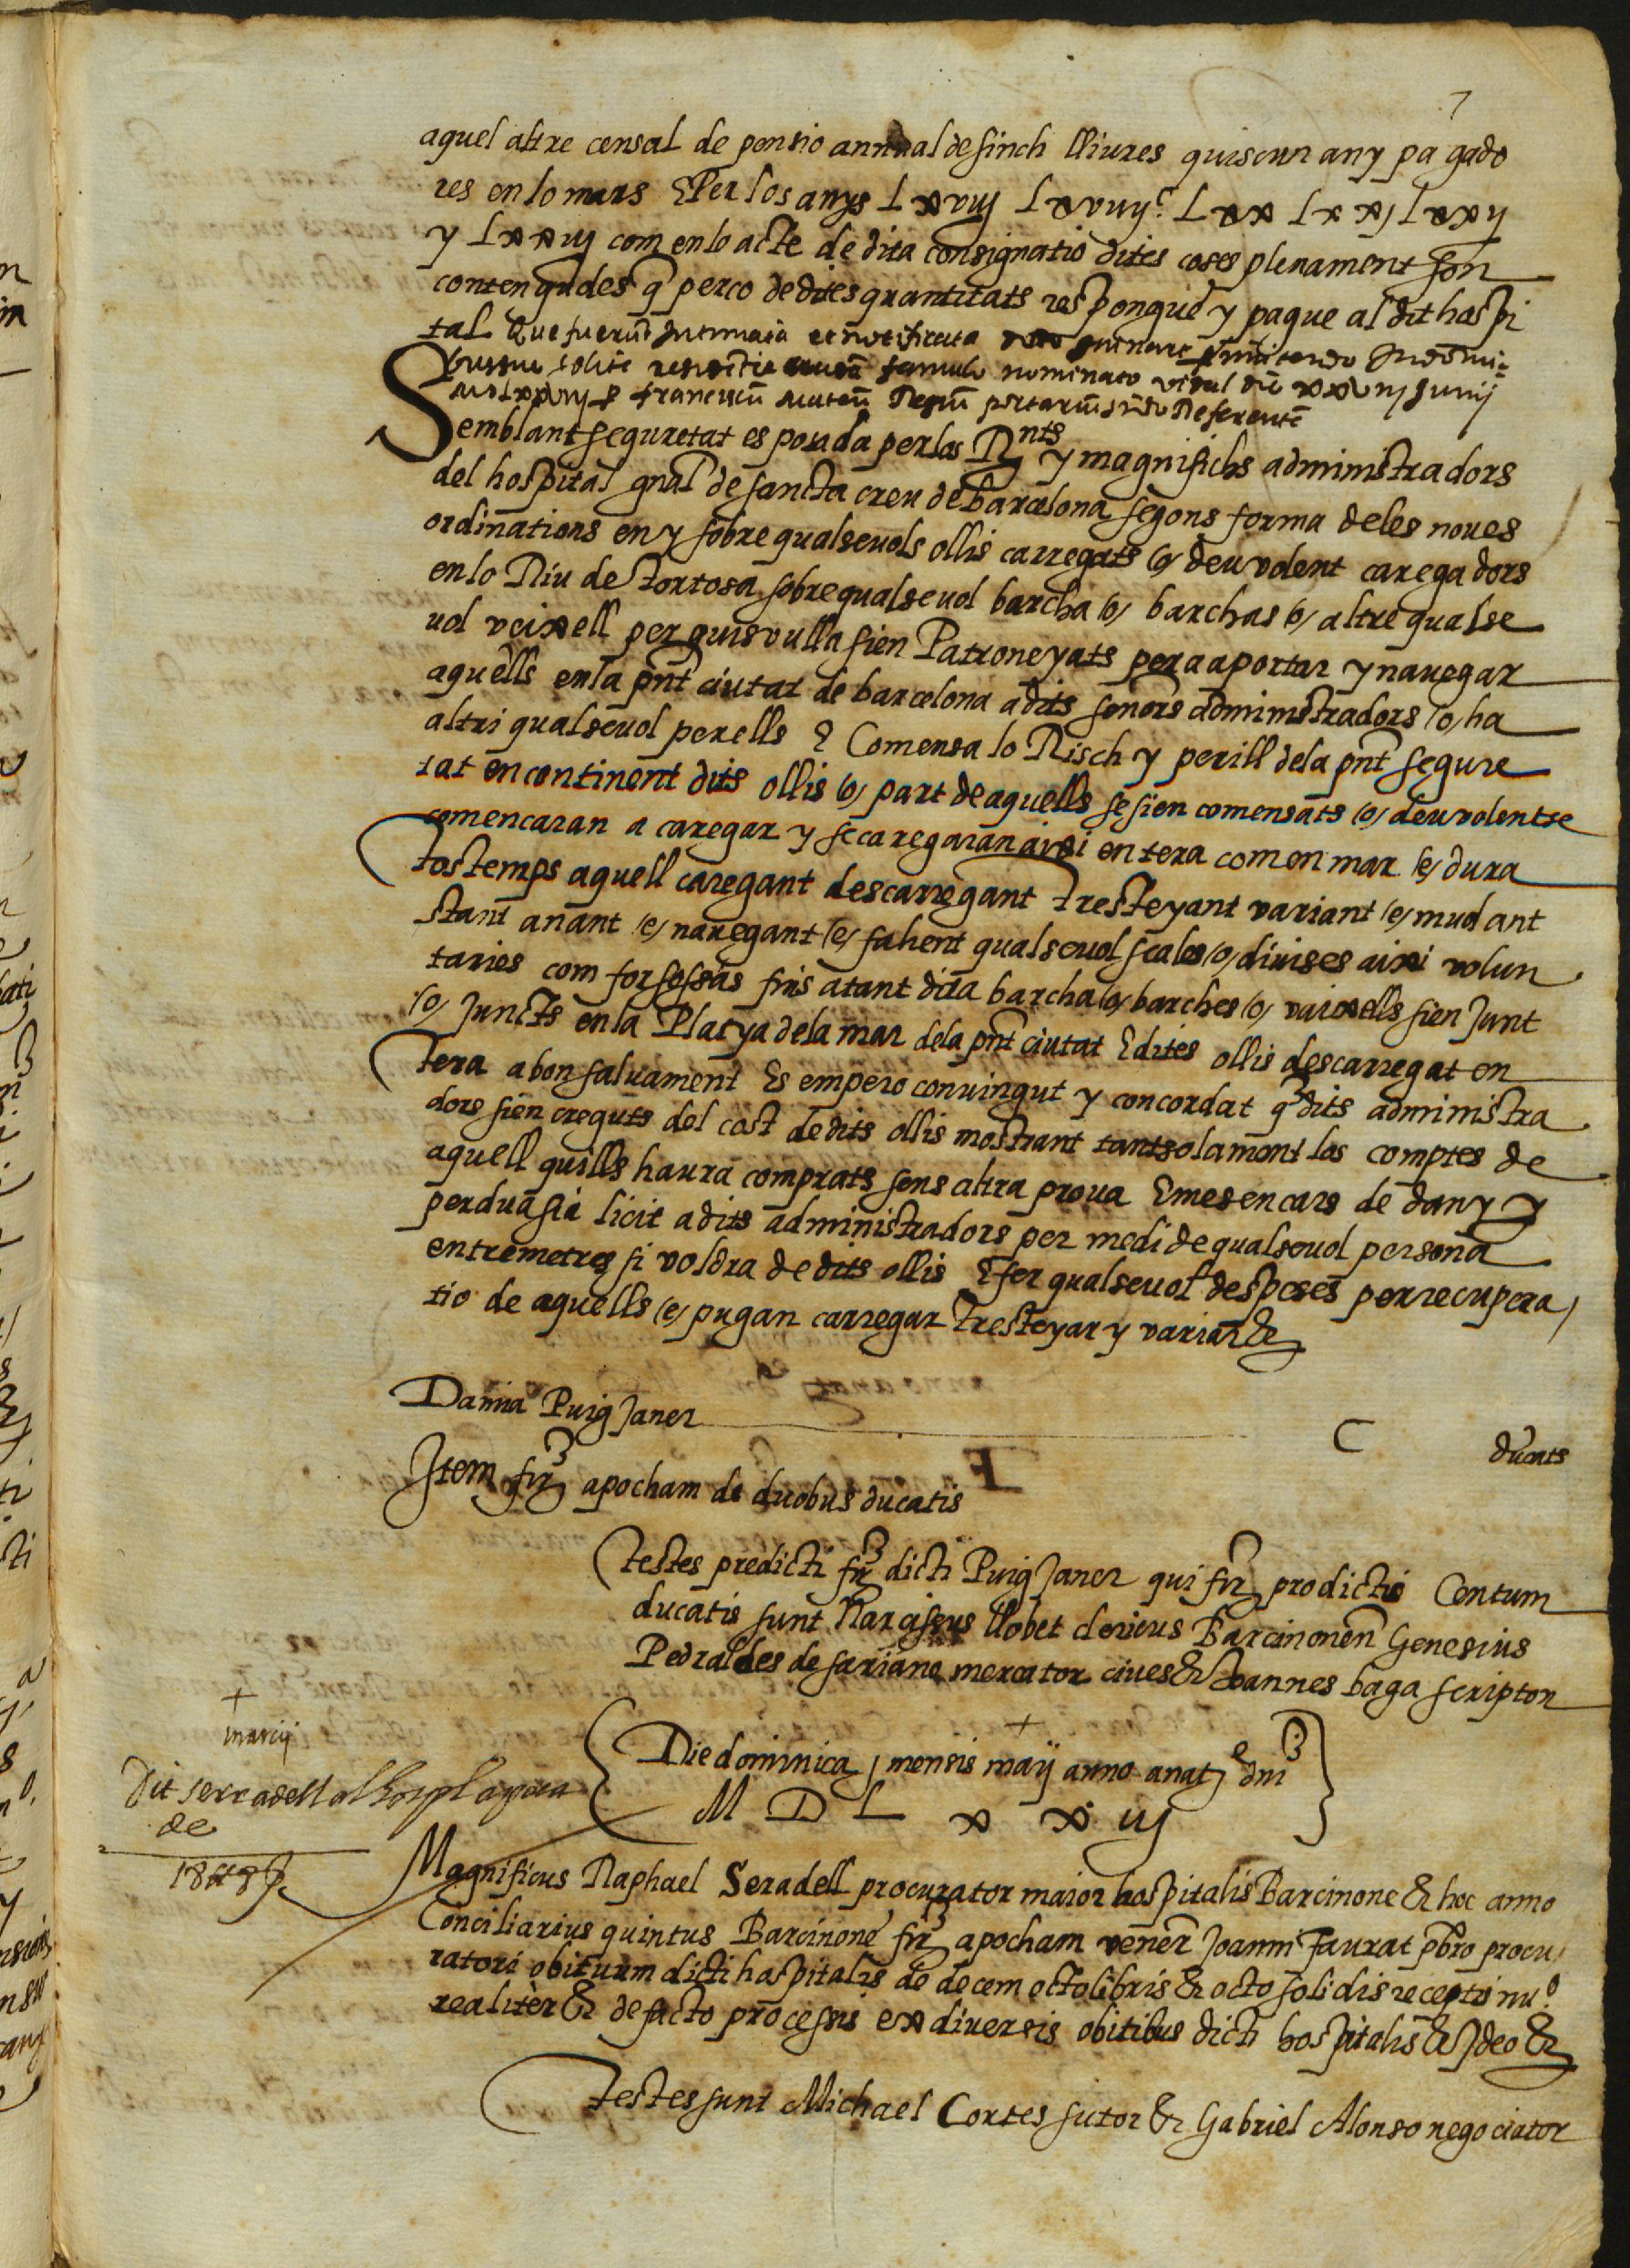 7
aquel altre censal de pensio annual de sinch lliures quiscun any pagado
res en lo mars E Per los anys Lxviij Lxviiij.º Lxx Lxxj Lxxij
y Lxxiij com en lo acte de dita consignatio dites coses plenament son
contengudes q̃ perco de dites quantitats respongue y pague al dit hospi
tal Que fuerũt intimata et notificata
famulo nominato vidal die xxviij Junij
franciscũ Regiũ portariũ
Semblant seguretat es posada per los Rnts y magnifichs administradors
del hospital gñal de sancta creu de barcelona segons forma deles noues
ordinations en y sobre qualseuols ollis carregats /o/ deu volent caregadors
en lo Riu de tortosa sobre qualseuol barcha /o/ barchas /o/ altre qualse
uol veixell per quisvulla sien Patroneyats per aaportar y nauegar
aquells en la pñt ciutat de barcelona a dits senors administradors /o/ ha
altri qualseuol per ells E Comensa lo Risch y perill dela pñt segure
tat encontinent dits ollis /o/ part de aquells se sien comensats /o/ deu volent se
comencaran a caregar y se caregaran aixi en tera com en mar /e/ dura
tostemps aquell caregant descarregant tresteyant variant /e/ mudant
stant anant /e/ nauegant /e/ fahent qualseuol scales /o/ diuises aixi volun
taries com forsossas fins atant dita barcha /o/ barches /o/ vaixells sien Junt
/o/ Juncts en la Platya dela mar dela pñt ciutat E dites ollis descarregat en
tera a bon saluament Es empero convingut y concordat q̃ dits administra
dors sien creguts del cost de dits ollis mostrant tantsolament los comptes de
aquell quills haura comprats sens altra prova E mes en cars de dany y
perdua sia licit a dits administradors per medi de qualseuol persona
entremetres si voldra de dits ollis E fer qualseuol despeses per recupera
tio de aquells /e/ pugan carregar tresteyar y variar &
Damia Puig Janer C ducats
Item fir apocham de duobus ducatis
testes predicti fir dicti Puig Janer qui fir pro dictis Centum
ducatis sunt Narcissus llobet clericus Barcinoneñ Genesius
Pedraldes de sariano mercator ciues & Joannes baga scriptor
Die dominica j mensis maij anno a natᵉ dñi
M D L x x iij
marcij
Dit serradell al hospl apoca
de
18 ₶ 8 s
Magnificus Raphael Seradell procurator maior hospitalis Barcinone & hoc anno
Conciliarius quintus Barcinone fir apocham veneri Joanni Faurat pbro procu
ratori obituum dicti hospitalis de decem octo libris & octo solidis receptis nu.º
realiter & de facto processis ex diversis obitibus dicti hospitalis & Ideo &
testes sunt Michael Cortes sutor & Gabriel Alonso negociator